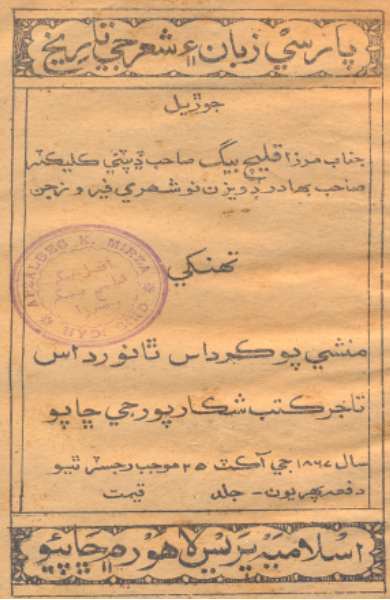 پارسي زبان ۽ شعر جي تاريخ
جوڙيل
جناب مرزا قليچ بيگ صاحب ڊپٽي ڪليڪٽر
صاحب بهادر ڊويزن نوشهري فيروزجن
تهنکي
AFZALBEG K. MIRZA
منشي پوڪرداس ٿانورداس
تاجر ڪتب شڪارپور جي ڇاپو
سال ١٨٦٧ جي آڪٽ ٢٥ موجب رجسٽر ٿيو
دفعه پهريون - جلد قيمت
اسلاميه پريس لاهور ۾ ڇاپيو